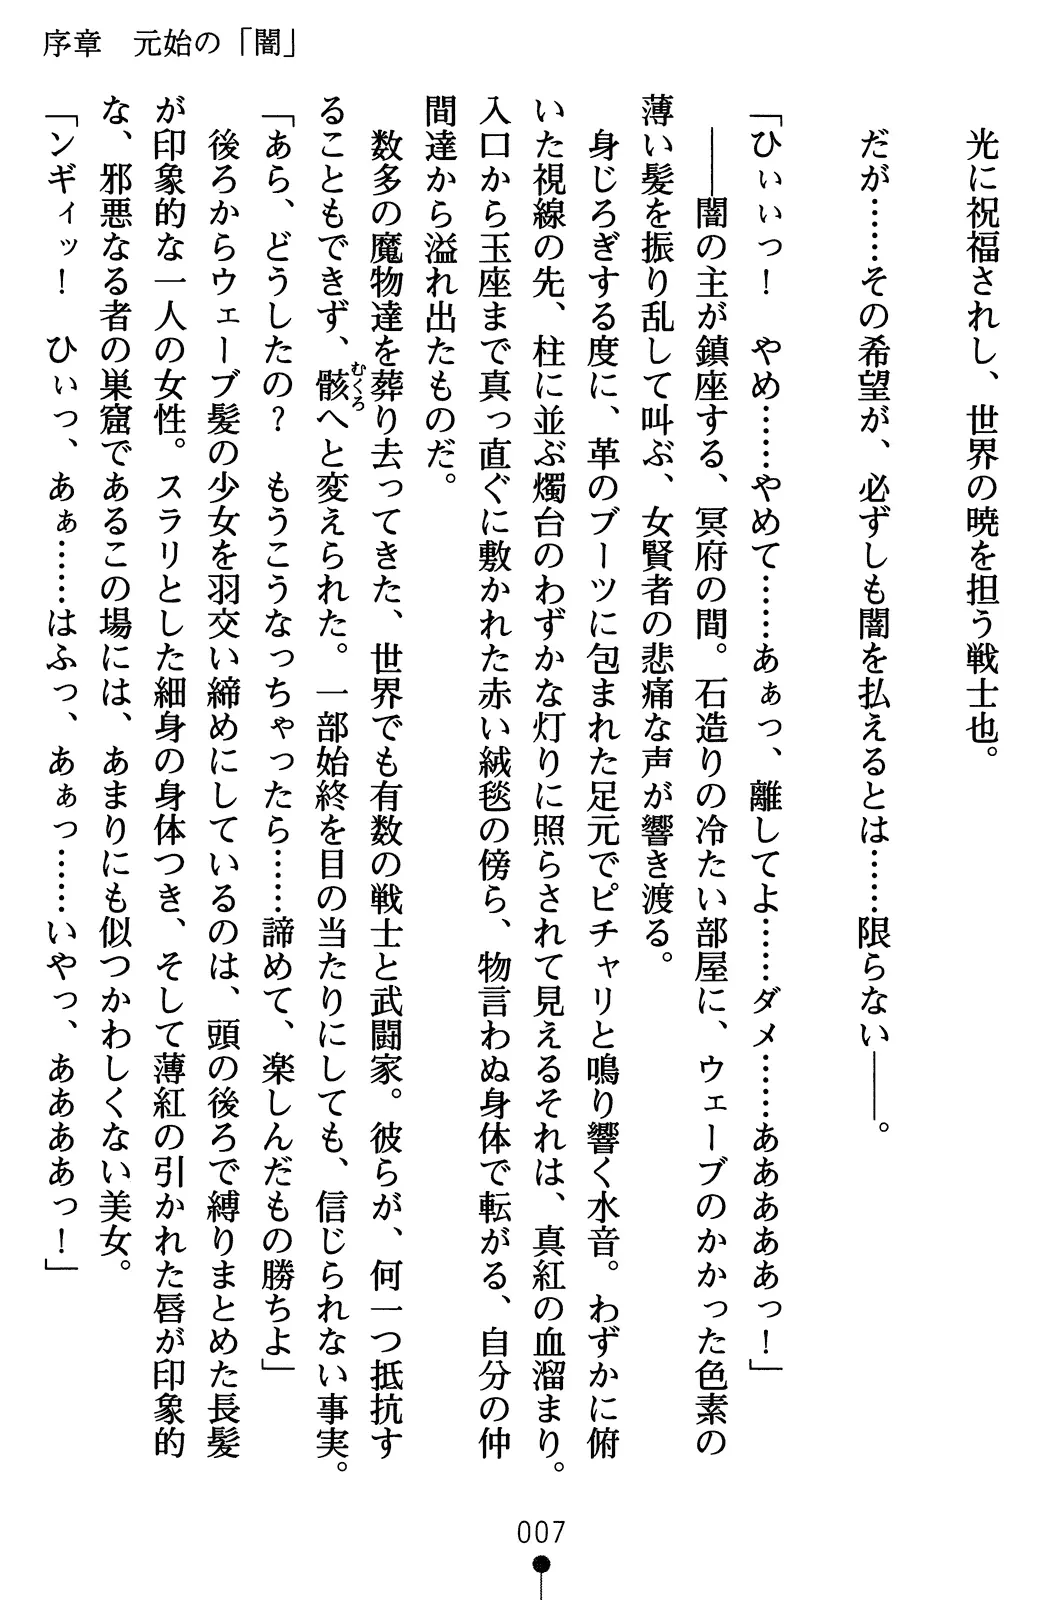 序章　元始の「闇」
光に祝福されし、世界の暁を担う戦士也。
だが……その希望が、必ずしも闇を払えるとは……限らない――。
「ひぃぃっ！　やめ……やめて……あぁっ、離してよ……ダメ……ああああっ！」
――闇の主が鎮座する、冥府の間。石造りの冷たい部屋に、ウェーブのかかった色素の
薄い髪を振り乱して叫ぶ、女賢者の悲痛な声が響き渡る。
身じろぎする度に、革のブーツに包まれた足元でピチャリと鳴り響く水音。わずかに俯
いた視線の先、柱に並ぶ燭台のわずかな灯りに照らされて見えるそれは、真紅の血溜まり。
入口から玉座まで真っ直ぐに敷かれた赤い絨毯の傍ら、物言わぬ身体で転がる、自分の仲
間達から溢れ出たものだ。
数多の魔物達を葬り去ってきた、世界でも有数の戦士と武闘家。彼らが、何一つ抵抗す
ることもできず、骸むくろへと変えられた。一部始終を目の当たりにしても、信じられない事実。
「あら、どうしたの？　もうこうなっちゃったら……諦めて、楽しんだもの勝ちよ」
後ろからウェーブ髪の少女を羽交い締めにしているのは、頭の後ろで縛りまとめた長髪
が印象的な一人の女性。スラリとした細身の身体つき、そして薄紅の引かれた唇が印象的
な、邪悪なる者の巣窟であるこの場には、あまりにも似つかわしくない美女。
「ンギィッ！　ひぃっ、あぁ……はふっ、あぁっ……いやっ、ああああっ！」
007